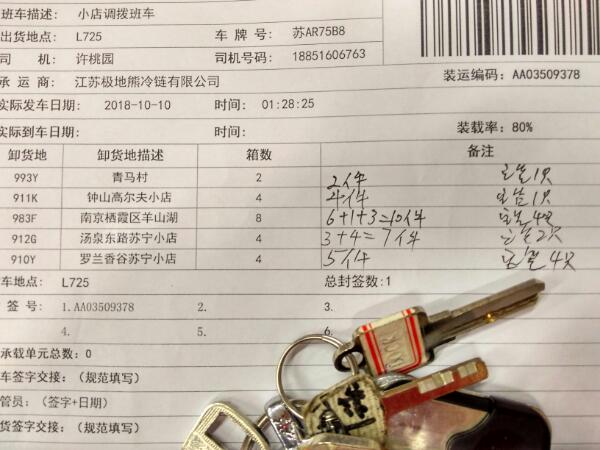 班车描述: 小店调拨班车
出货地点: L725 车牌号: 苏AR75B8
司机: 许桃园 司机号码: 18851606763
承运商: 江苏极地熊冷链有限公司 装运编码: AA03509378
实际发车日期: 2018-10-10 时间: 01:28:25
实际到车日期: 时间: 装载率: 80%
卸货地 卸货地描述 箱数 备注
993Y 青马村 2 2件 1只
911K 钟山高尔夫小店 4 4件 1只
983F 南京栖霞区羊山湖 8 6+1+3=10件 4只
912G 汤泉东路苏宁小店 4 3+4=7件 2只
910Y 罗兰香谷苏宁小店 4 5件 4只
车地点: L725 总封签数:1
签号: 1.AA03509378 2. 3.
4. 5. 6.
承载单元总数: 0
车签字交接: (规范填写)
管员: (签字+日期)
货签字交接: (规范填写)